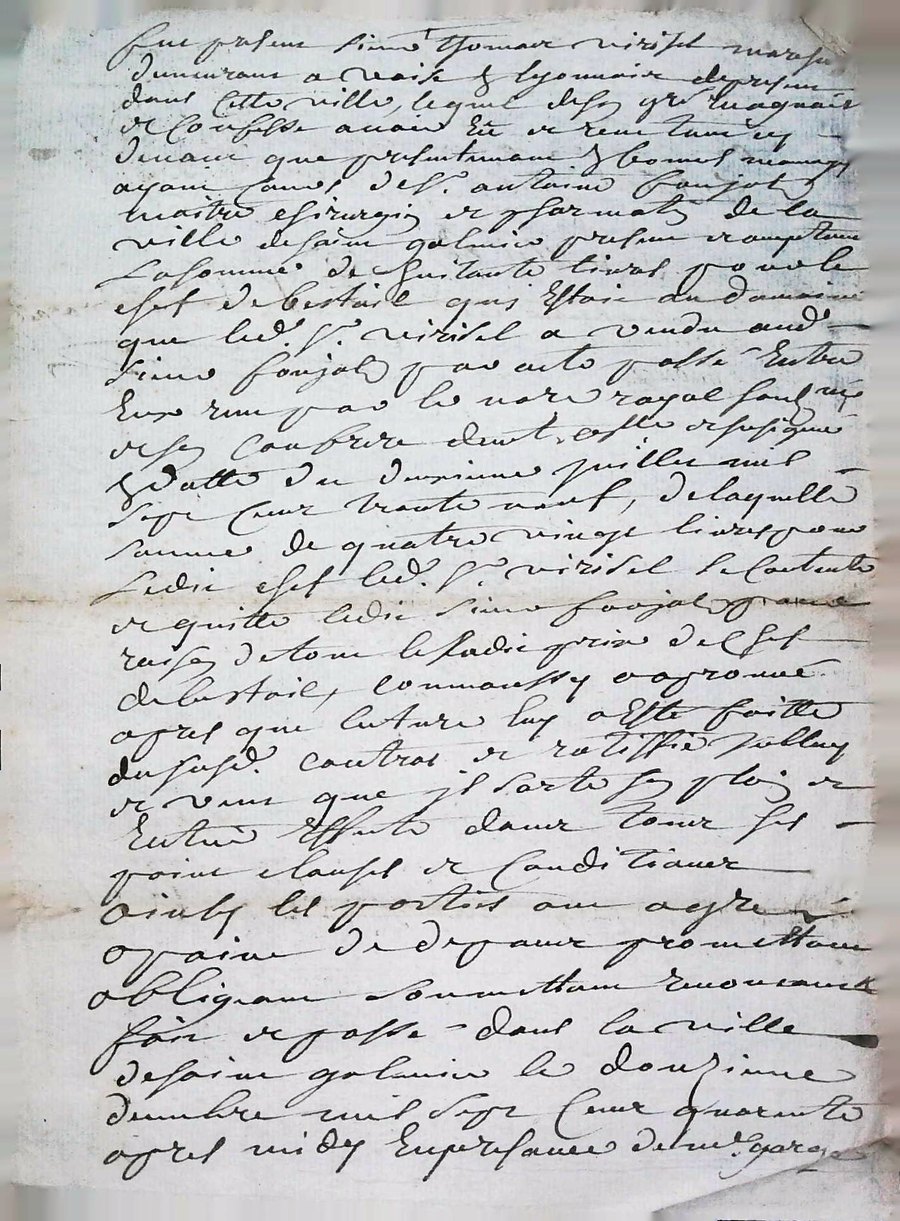 fut present sieur thomas virisel march
demeurant a vaise & lyonnais de present
dans cette ville, lequel de son gré reconnait
et confesse avoir eu et recu tant cy
devant que presentement & bonnes
ayant dese Sr. antoine foujols
maitre chirurgien et pharmat de la
ville de saint galmier present et acceptant
La somme de huitante livres pour le
chef de bestail qui Estoit au domaine
que led. Sr. virisel a vendu aud.
Sieur foujols par acte passé Entre
Eux reçu par le nore royal sous
et son confrere dont est susigné
& datte du deuxieme juillet mil
Sept Cent trente neuf, de laquelle
somme de quatre vingt livres pour
Ledit chef led. Sr. virisel se Contente
et quitte ledit sieur foujols
raison de tout le susdit prix de chef
de bestail, comme aussy a aprouvé
apres que lecture luy a Esté faitte
du susd. contrat et ratiffié Jcelluy
et veut que jl sorte son plein et
Entier Effects dans tous ses
point clauses et Conditions
ainsy les parties ont agréé
a peine de depans promettant
obligeant soumettant renonceant
fait et passé dans la ville
de saint galmier le douzieme
decembre mil sept Cent quarente
apres midy En presence de mre.